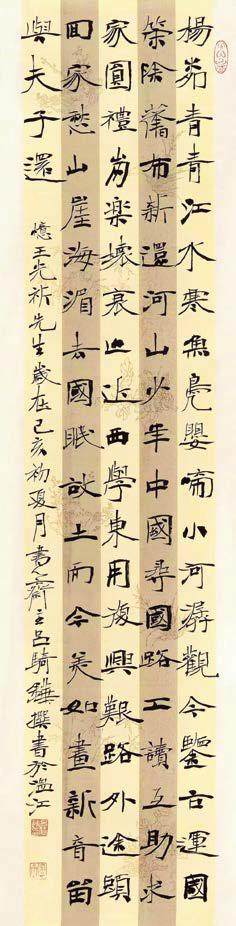 楊柳青青江水寒魚鳧嬰啼小河潺觀今鑒古運國
策除舊布新還河山少年中國尋國路工讀互助求
家圓禮崩樂壞哀近西學東用復興艱路外途頭
回家愁山崖海湄去國眠故土而今美如畫新音苗
與夫子還
憶王光祈先生歲在己亥初夏月齋主呂騎鏵撰書於溫江